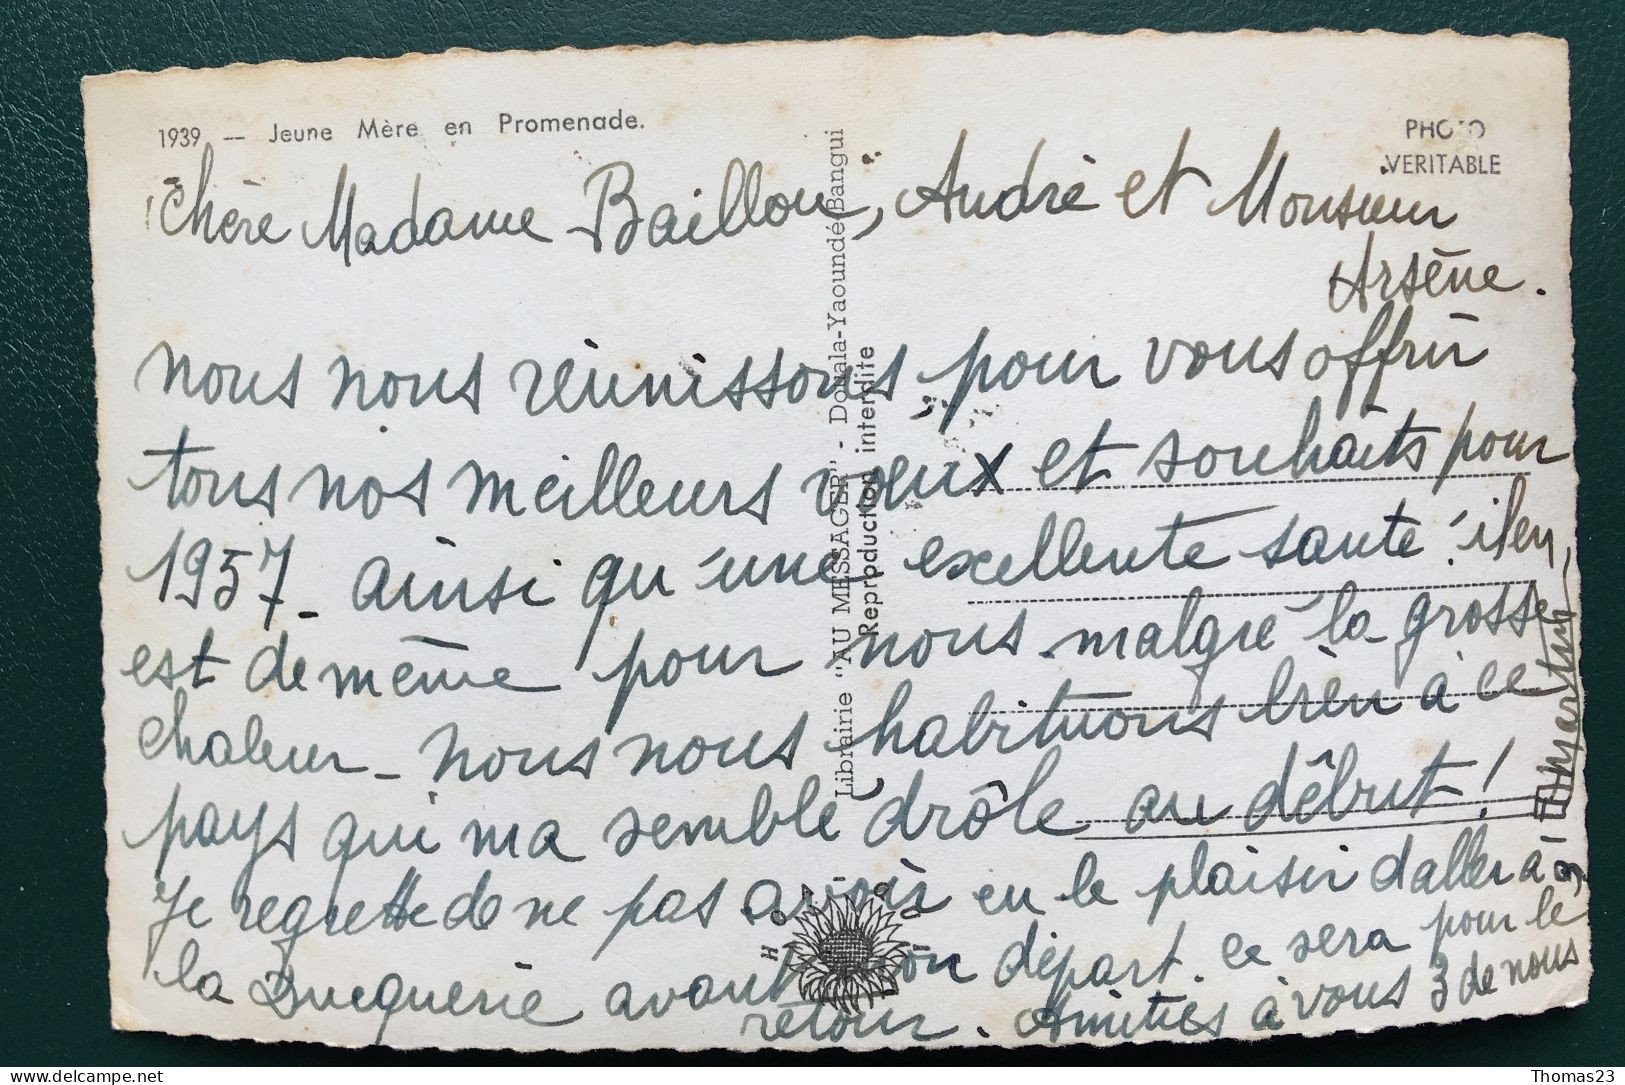 1939 — Jeune Mère en Promenade.
PHOTO
VERITABLE
Chère Madame Baillou, André et Monsieur
Arsène.
nous nous réunissons pour vous offrir
tous nos meilleurs vœux et souhaits pour
1957 - ainsi qu'une excellente santé ! il en
est de même pour nous malgré la grosse
chaleur - nous nous habituons bien à ce
pays qui ma semblé drôle au début !
Je regrette de ne pas avoir eu le plaisir daller à
la Ducquerie avant mon départ. ce sera pour le
retour. Amitiés à vous 3 de nous
3!
Librairie "AU MESSAGER" - Douala-Yaoundé-Bangui
Reproduction interdite
H O A - Q U I
Thomas23